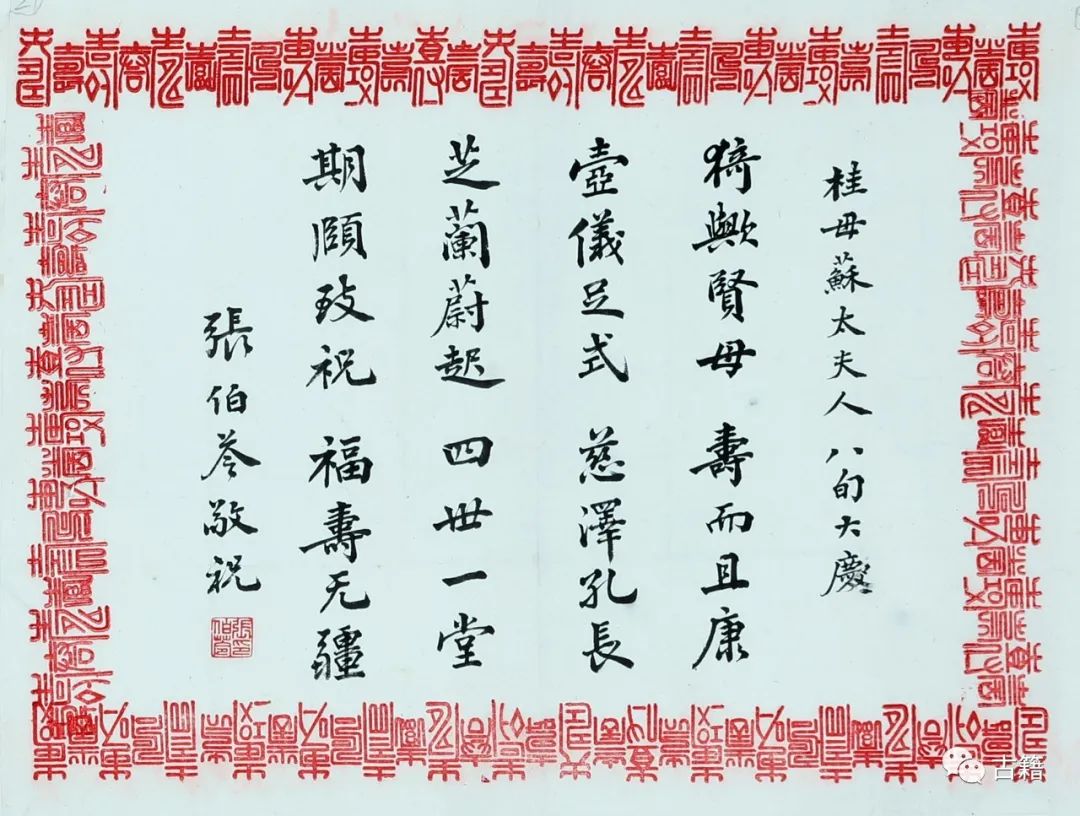 桂母蘇太夫人八旬大慶
猗歟賢母 壽而且康
壼儀足式 慈澤孔長
芝蘭蔚起 四世一堂
期頤致祝 福壽无疆
張伯苓敬祝
古籍